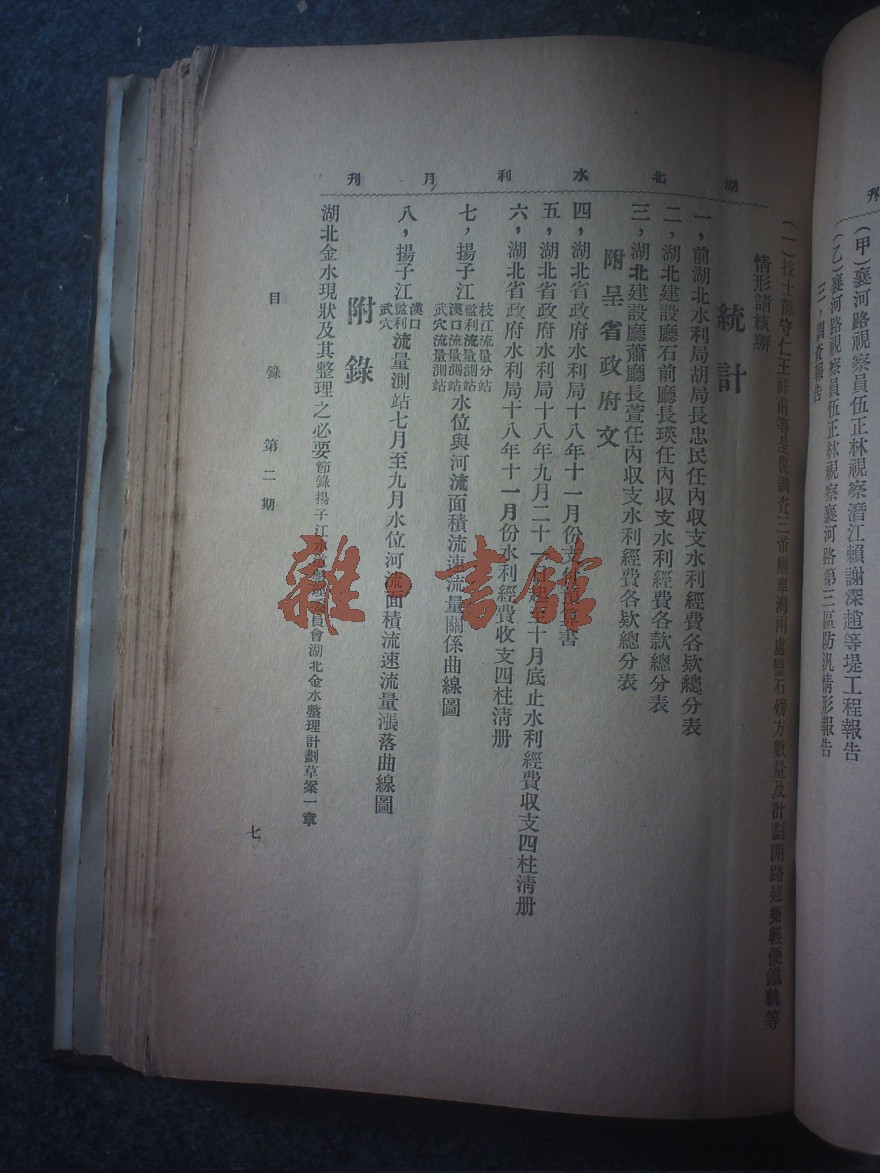 刋
(甲)襄河路視察員伍正林視察潛江賴謝深趙等堤工程報告
(乙)襄河路視察員伍正林視察襄河路第三區防汎情形報告
三，調查報告
湖北水利月刊
(一)技士 守仁王祥甫等呈復調查三帝廟車灣兩處蠻石磅方數量及計劃開路建築輕便鐵軌等
情形請核辦
統計
一，前湖北水利局胡局長忠民任內収支水利經費各欵總分表
二，湖北建設廳石前廳長瑛任內収支水利經費各款總分表
三，湖北建設廳蕭廳長萱任內収支水利經費各欵總分表
附呈省政府文
四，湖北省政府水利局十八年十一月份支 書
五，湖北省政府水利局十八年九月二十一日 至十月底止水利經費収支四柱淸册
六，湖北省政府水利局十八年十一月份水利經費收支四柱淸册
七，揚子江枝江流量分站監利流量測站漢口流量測站武穴流量測站水位與河流面積流速流量關係曲線圖
八，揚子江漢口監利武穴流量測站七月至九月水位河流面積流速流量漲落曲線圖
附錄
湖北金水現狀及其整理之必要節錄揚子江水 員會湖北金水整理計劃草案一章
目錄 第二期
七
雜·書館